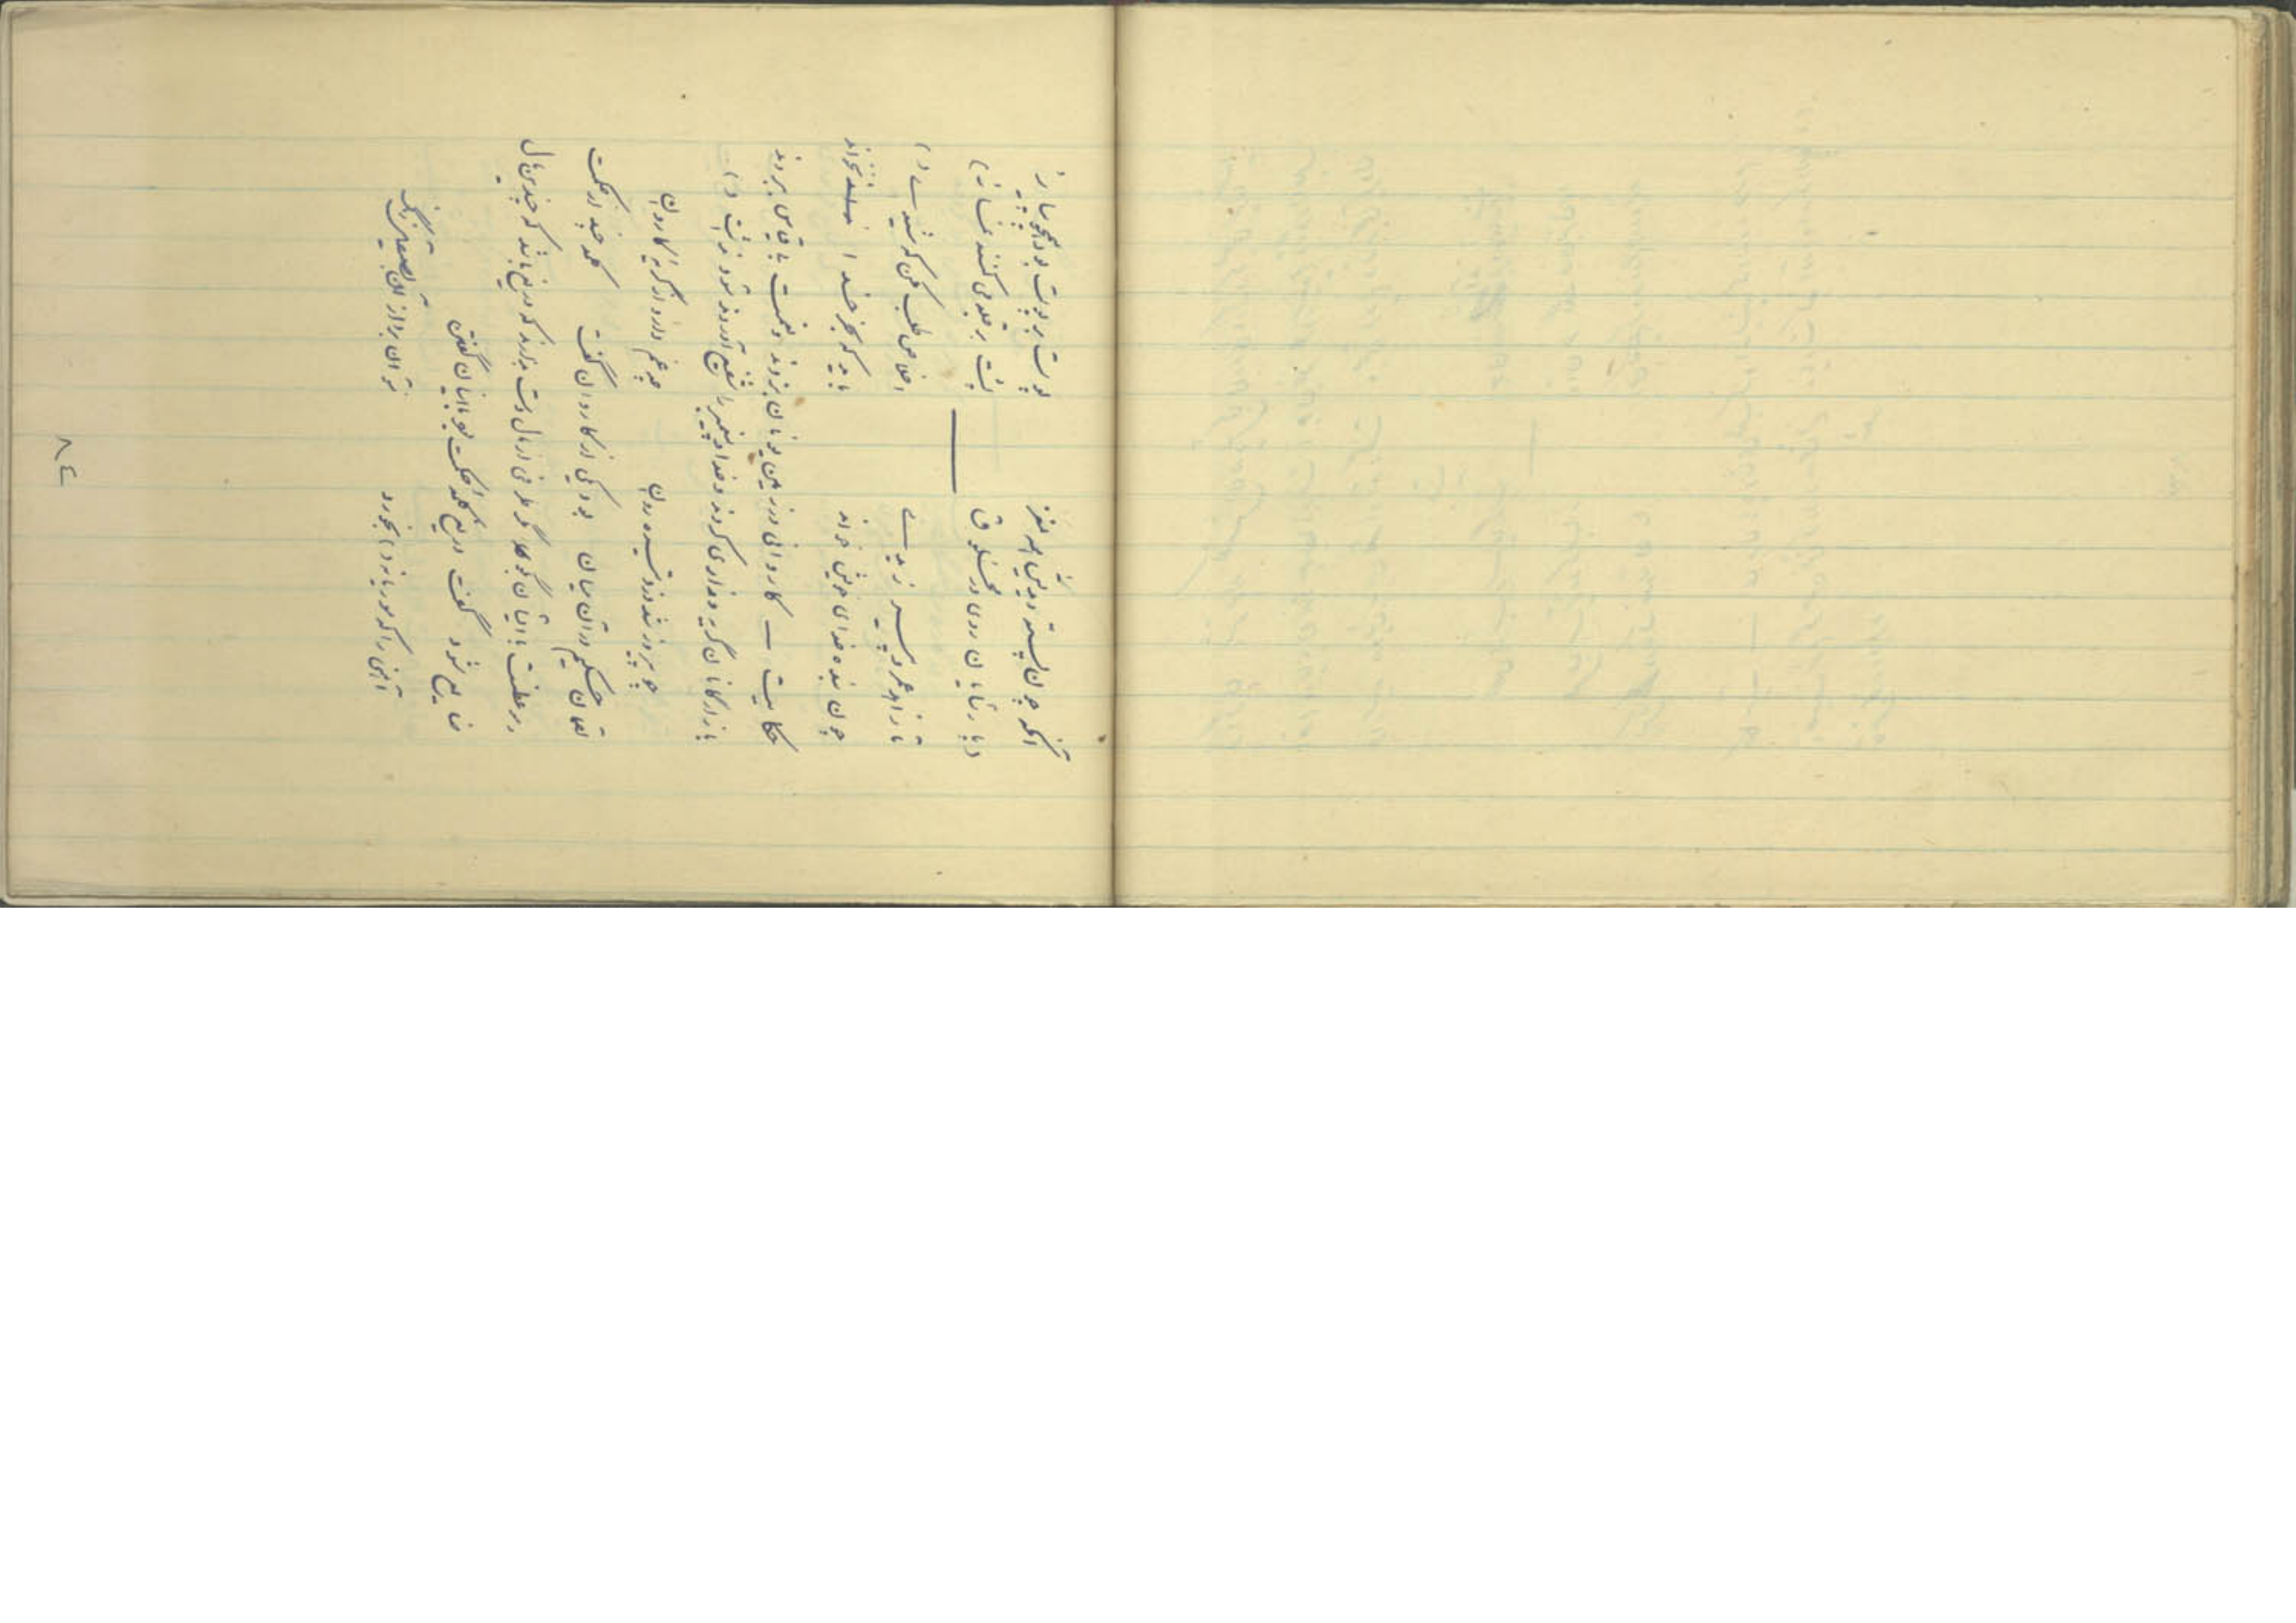 آنکه چون پسته دیدمش همه مغز پوست بر پوست بود همچو پیاز
پارسایان روی در مخلوق پشت بر قبله می کنند نماز
تا زاهد عمرو و بکر و زیدی اخلاص طلب مکن که شیدی
چون بنده خدای خویش خواند باید که بجز خدا نداند
حکایت ـ کاروانی در زمین یونان بزدند و نعمت بی قیاس ببردند
بازارگانان گریه و زاری کردند و خدا و پیغمبر را شفیع آوردند سود نداشت
چو پیروز شد دزد تیره روان چه غم دارد از گریه کاروان
لقمان حکیم در آن میان بود یکی از کاروان گفت کلمه چند از حکمت
و موعظت با ایشان بگو مگر طرفی از مال دست بدارند که دریغ باشد که چندین مال
ضایع شود گفت دریغ کلمه حکمت با ایشان گفتن
آهنی را که موریانه بخورد نتوان برد از آن بصیقل زنگ
٨٤